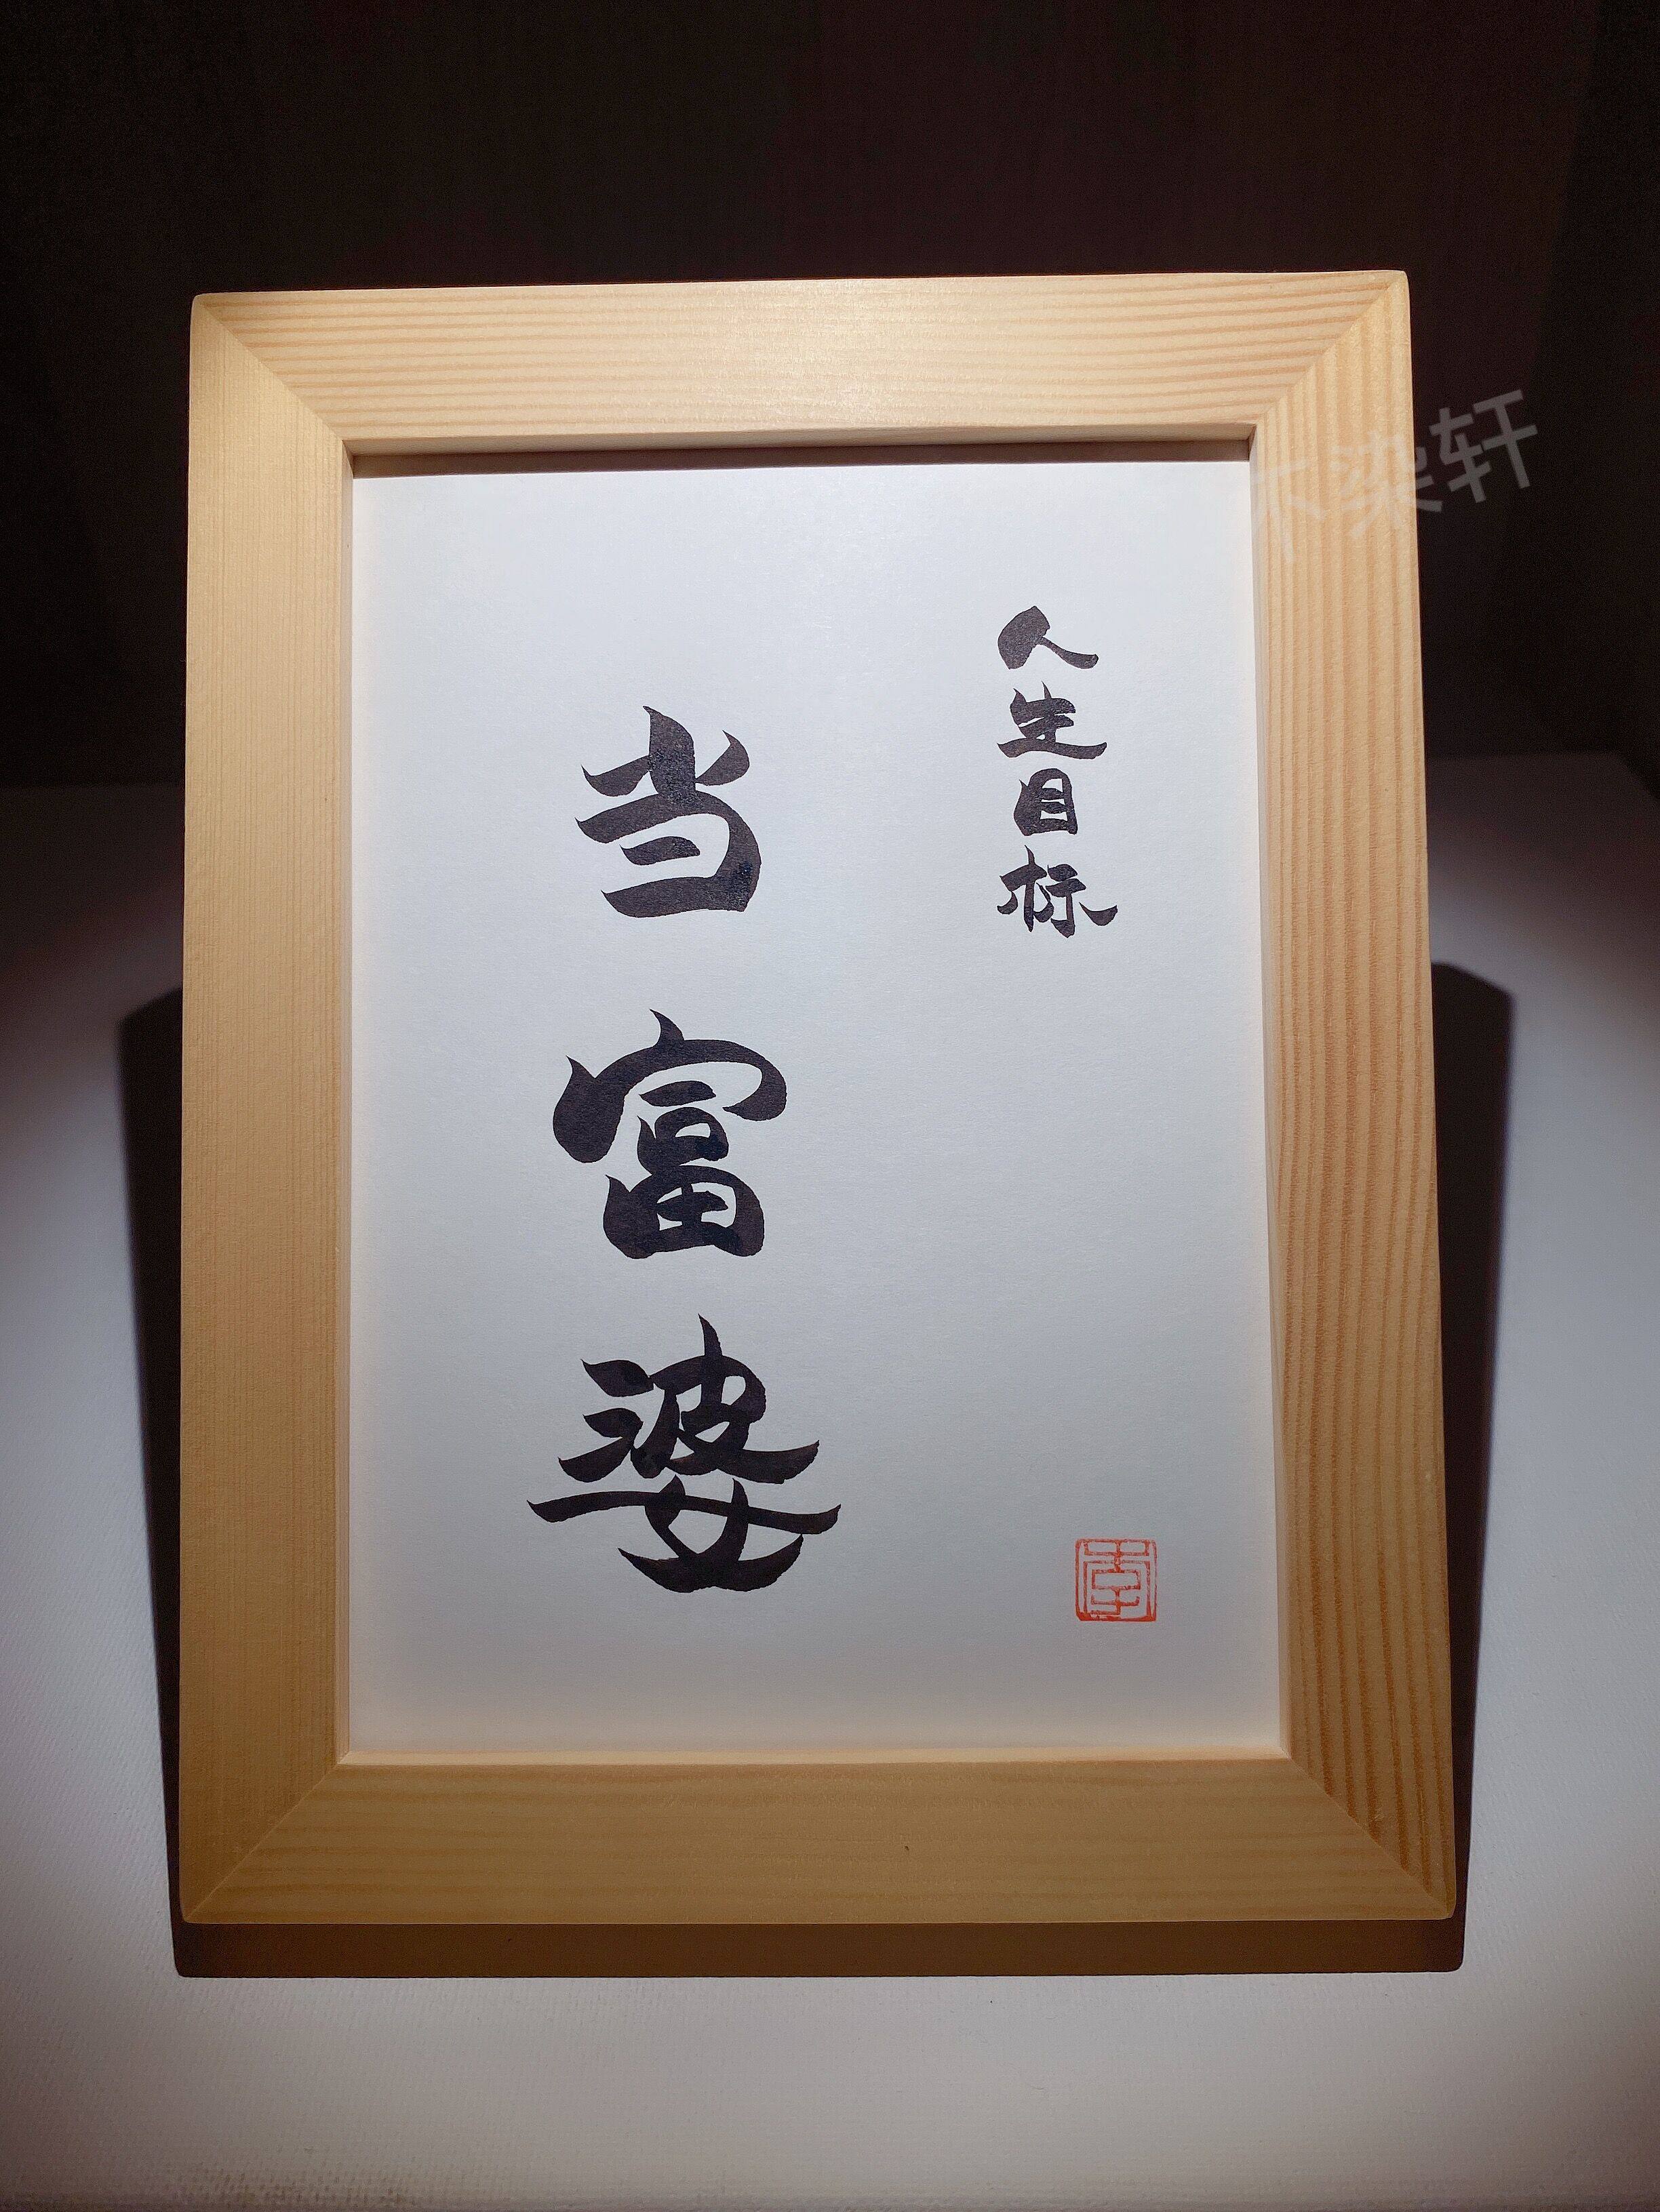 人生目标
当富婆
不染轩